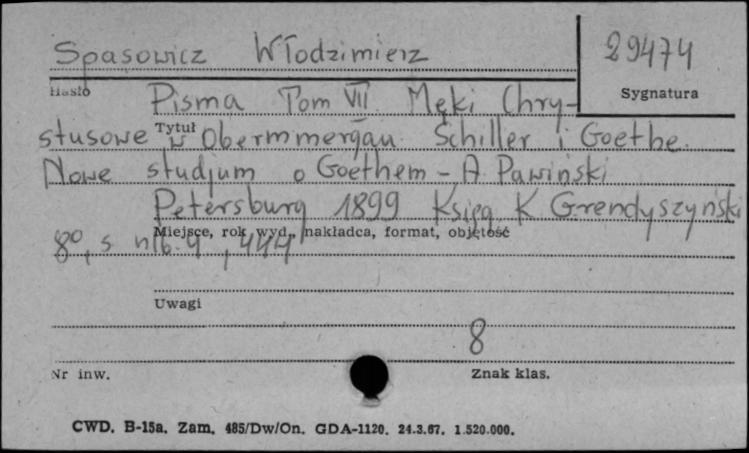 Spasowicz Włodzimierz
29474
Hasło
Sygnatura
Pisma Tom VII Męki Chry-
stusowe w Obermmergau Schiller i Goethe.
Tytuł
Nowe studjum o Goethem - A. Pawiński
Petersburg 1899 Księg. K Grendyszyński
Miejsce, rok wyd., nakładca, format, objętość
8°, s nlb. 4, 444
Uwagi
8
Nr inw.
Znak klas.
CWD. B-15a. Zam. 485/Dw/On. GDA-1120. 24.3.67. 1.520.000.